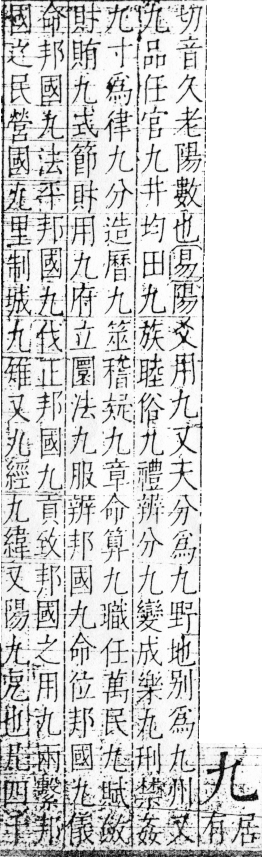 九
居
有
切音久老陽數也易陽爻用九又天分爲九野地別爲九州又
九品任官九井均田九族睦俗九禮辨分九變成樂九刑禁姦
九寸爲律九分造曆九筮稽疑九章命算九職任萬民九賦斂
財賄九式節財用九府立圜法九服辨邦國九命位邦國九儀
命邦國九法平邦國九伐正邦國九貢致邦國之用九兩繫邦
國之民營國九里制城九雉又九經九緯又陽九戹也凡四千